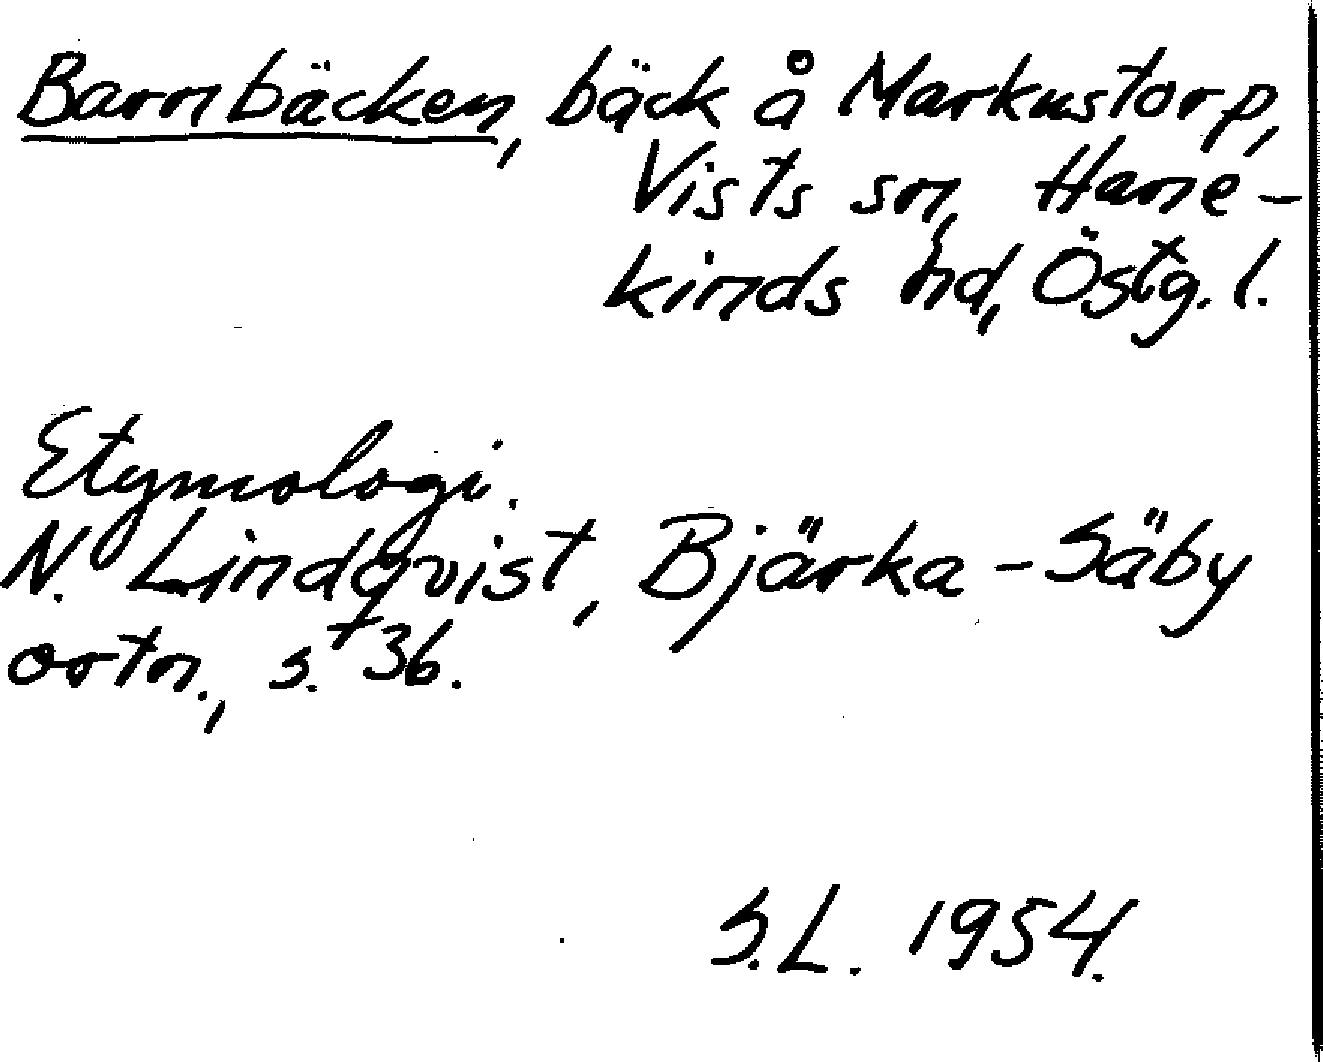 Barnbäcken, bäck å Markustorp,
Vists sn, Hane-
kinds hd, Östg. l.
Etymologi.
N. Lindqvist, Bjärka-Säby
ortn., s. 36.
S.L. 1954.